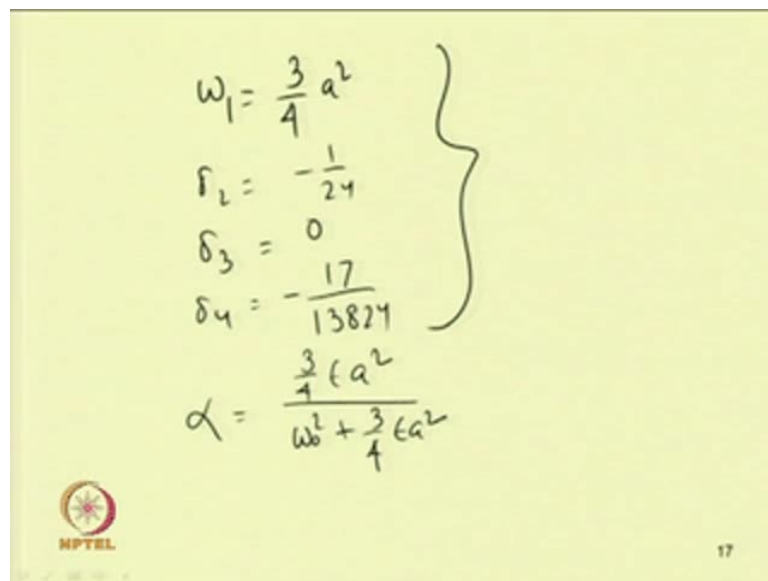 ω₁ = 3/4 a²
δ₂ = - 1/24
δ₃ = 0
δ₄ = - 17/13824
α = (3/4 ϵ a²)/(ω₀² + 3/4 ϵa²)
NPTEL
17